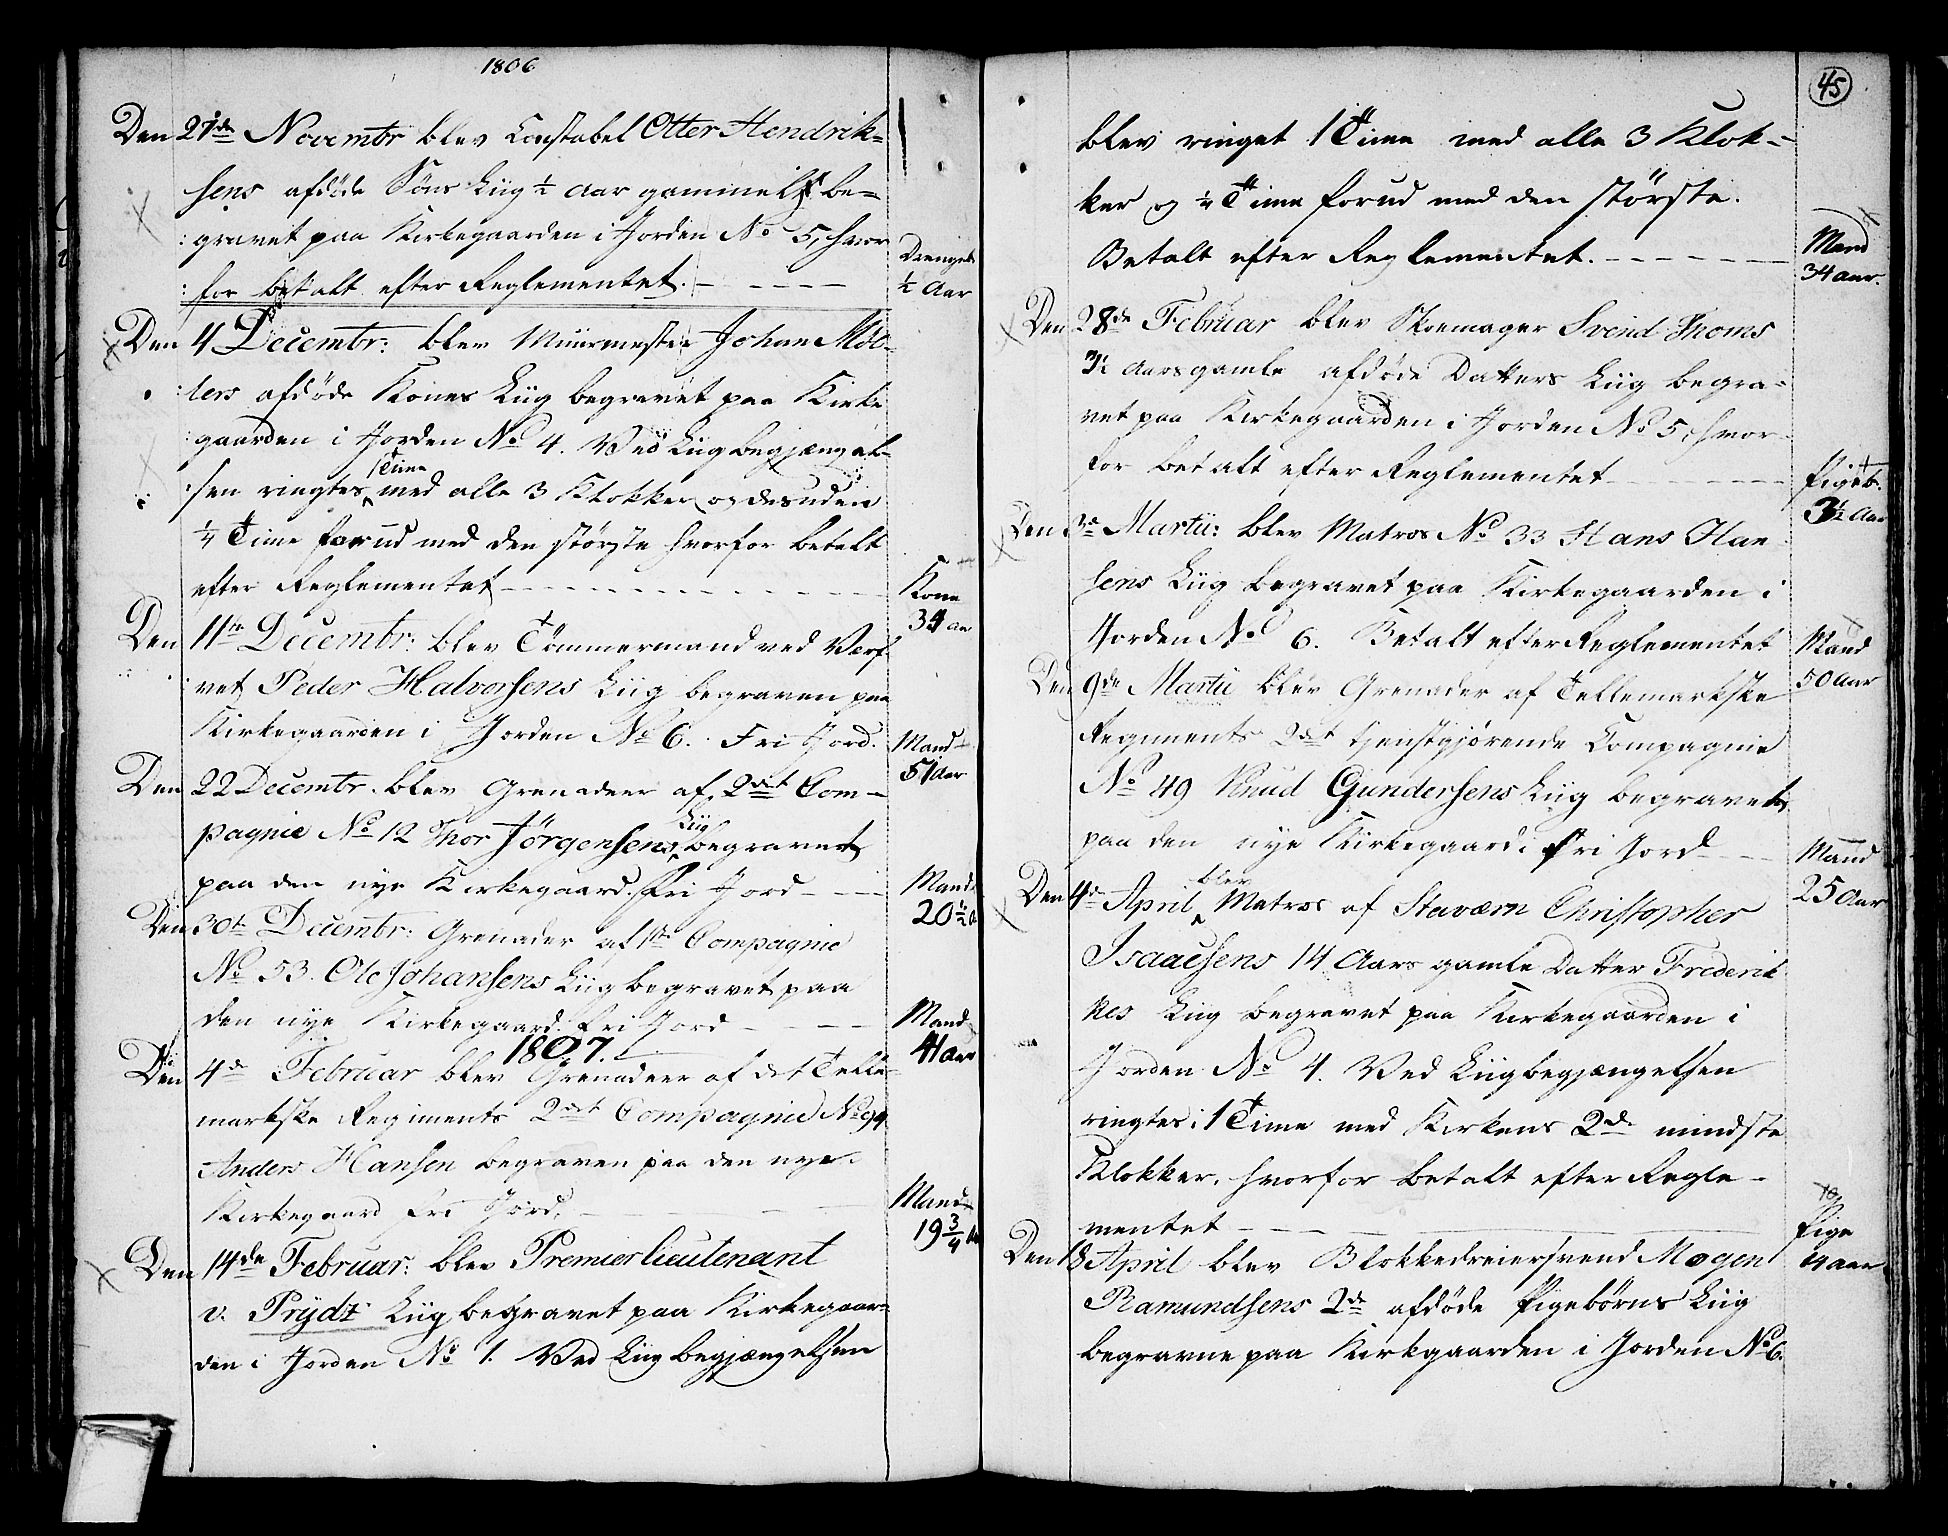 1806
Den 27de Novembr blev Constabel Otter Hendrik-
sens afdöde Söns Liig ½ Aar gammel be-
gravet paa Kirkegaarden i Jorden No 5, hvor
for betalt efter Reglementet.
Drengeb.
½ Aar
Den 4 Decembr: blev Muurmester Johan Möl-
lers afdöde Kones Liig begravet paa Kirke
gaarden i Jorden No 4. Ved Liigbegjængel-
sen ringtes 1 Time med alle 3 Klokker og desuden
¼ Time forud med den störste hvorfor betalt
efter Reglementet
Kone
34 Aar
Den 11te Decembr: blev Tömmermand ved Verf-
vet Peder Halvorsens Liig begraven paa
Kirkegaarden i Jorden No 6. Fri Jord.
Mand
51 Aar
Den 22 Decembr. blev Grenadeer af 2det Com-
pagnie No 12 Thor Jörgensens Liig begravet
paa den nye Kirkegaard. Fri Jord
Mand
20½ A
Den 30t Decembr: Grenader af 1ste Compagnie
No 53. Ole Johansens Liig begravet paa
den nye Kirkegaard. Fri Jord
Mand
41 Aar
1807.
Den 4de Februar blev Grenadeer af det Telle-
markske Regiments 2det Compagnie No 94
Anders Hansen begraven paa den nye
Kirkegaard Fri Jord.
Mand
19¾ A
Den 14de Februar: blev Premierlieutenant
v. Prydz Liig begravet paa Kirkegaar-
den i Jorden No 1. Ved Liigbegjængelsen
45
blev ringet 1 Time med alle 3 Klok-
ker og ¼ Time forud med den störste.
Betalt efter Reglementet.
Mand
34 aar.
Den 28de Februar blev Skoemager Svend Thoms
3½ Aars gamle afdöde Datters Liig begra-
vet paa Kirkegaarden i Jorden No 5, hvor-
for betalt efter Reglementet
Pigeb.
3½ Aar
Den 3de Martii: blev Matros No 33 Hans Han
sens Liig begravet paa Kirkegaarden i
Jorden No 6. Betalt efter Reglementet
Mand
50 Aar
Den 9de Martii blev Grenader af Tellemarkske
Regiments 2det tjenstgjörende Compagnie
No 49 Knud Gundersens Liig begravet
paa den nye Kirkegaard i Fri Jord
Mand
25 Aar
Den 4de April blev Matros af Staværn Christopher
Isaacsens 14 Aars gamle Datter Frederik
kes Liig begravet paa Kirkegaarden i
Jorden No 4. Ved Liigbegjængelsen
ringtes i 1 Time med Kirkens 2de mindste
Klokker, hvorfor betalt efter Regle-
mentet
Pige
14 aar
Den 18 April blev Blokkedreiersvend Mogen
Ramundsens 2de afdöde Pigebörns Liig
begravne paa Kirkgaarden i Jorden No 6.